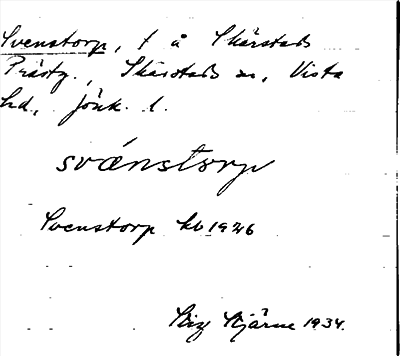 Svenstorp, t å Skärstads
Prästg., Skärstads sn, Vista
hd, Jönk. l.
svénstorp
Svenstorp kb 1926
Stig Bjärne 1934.